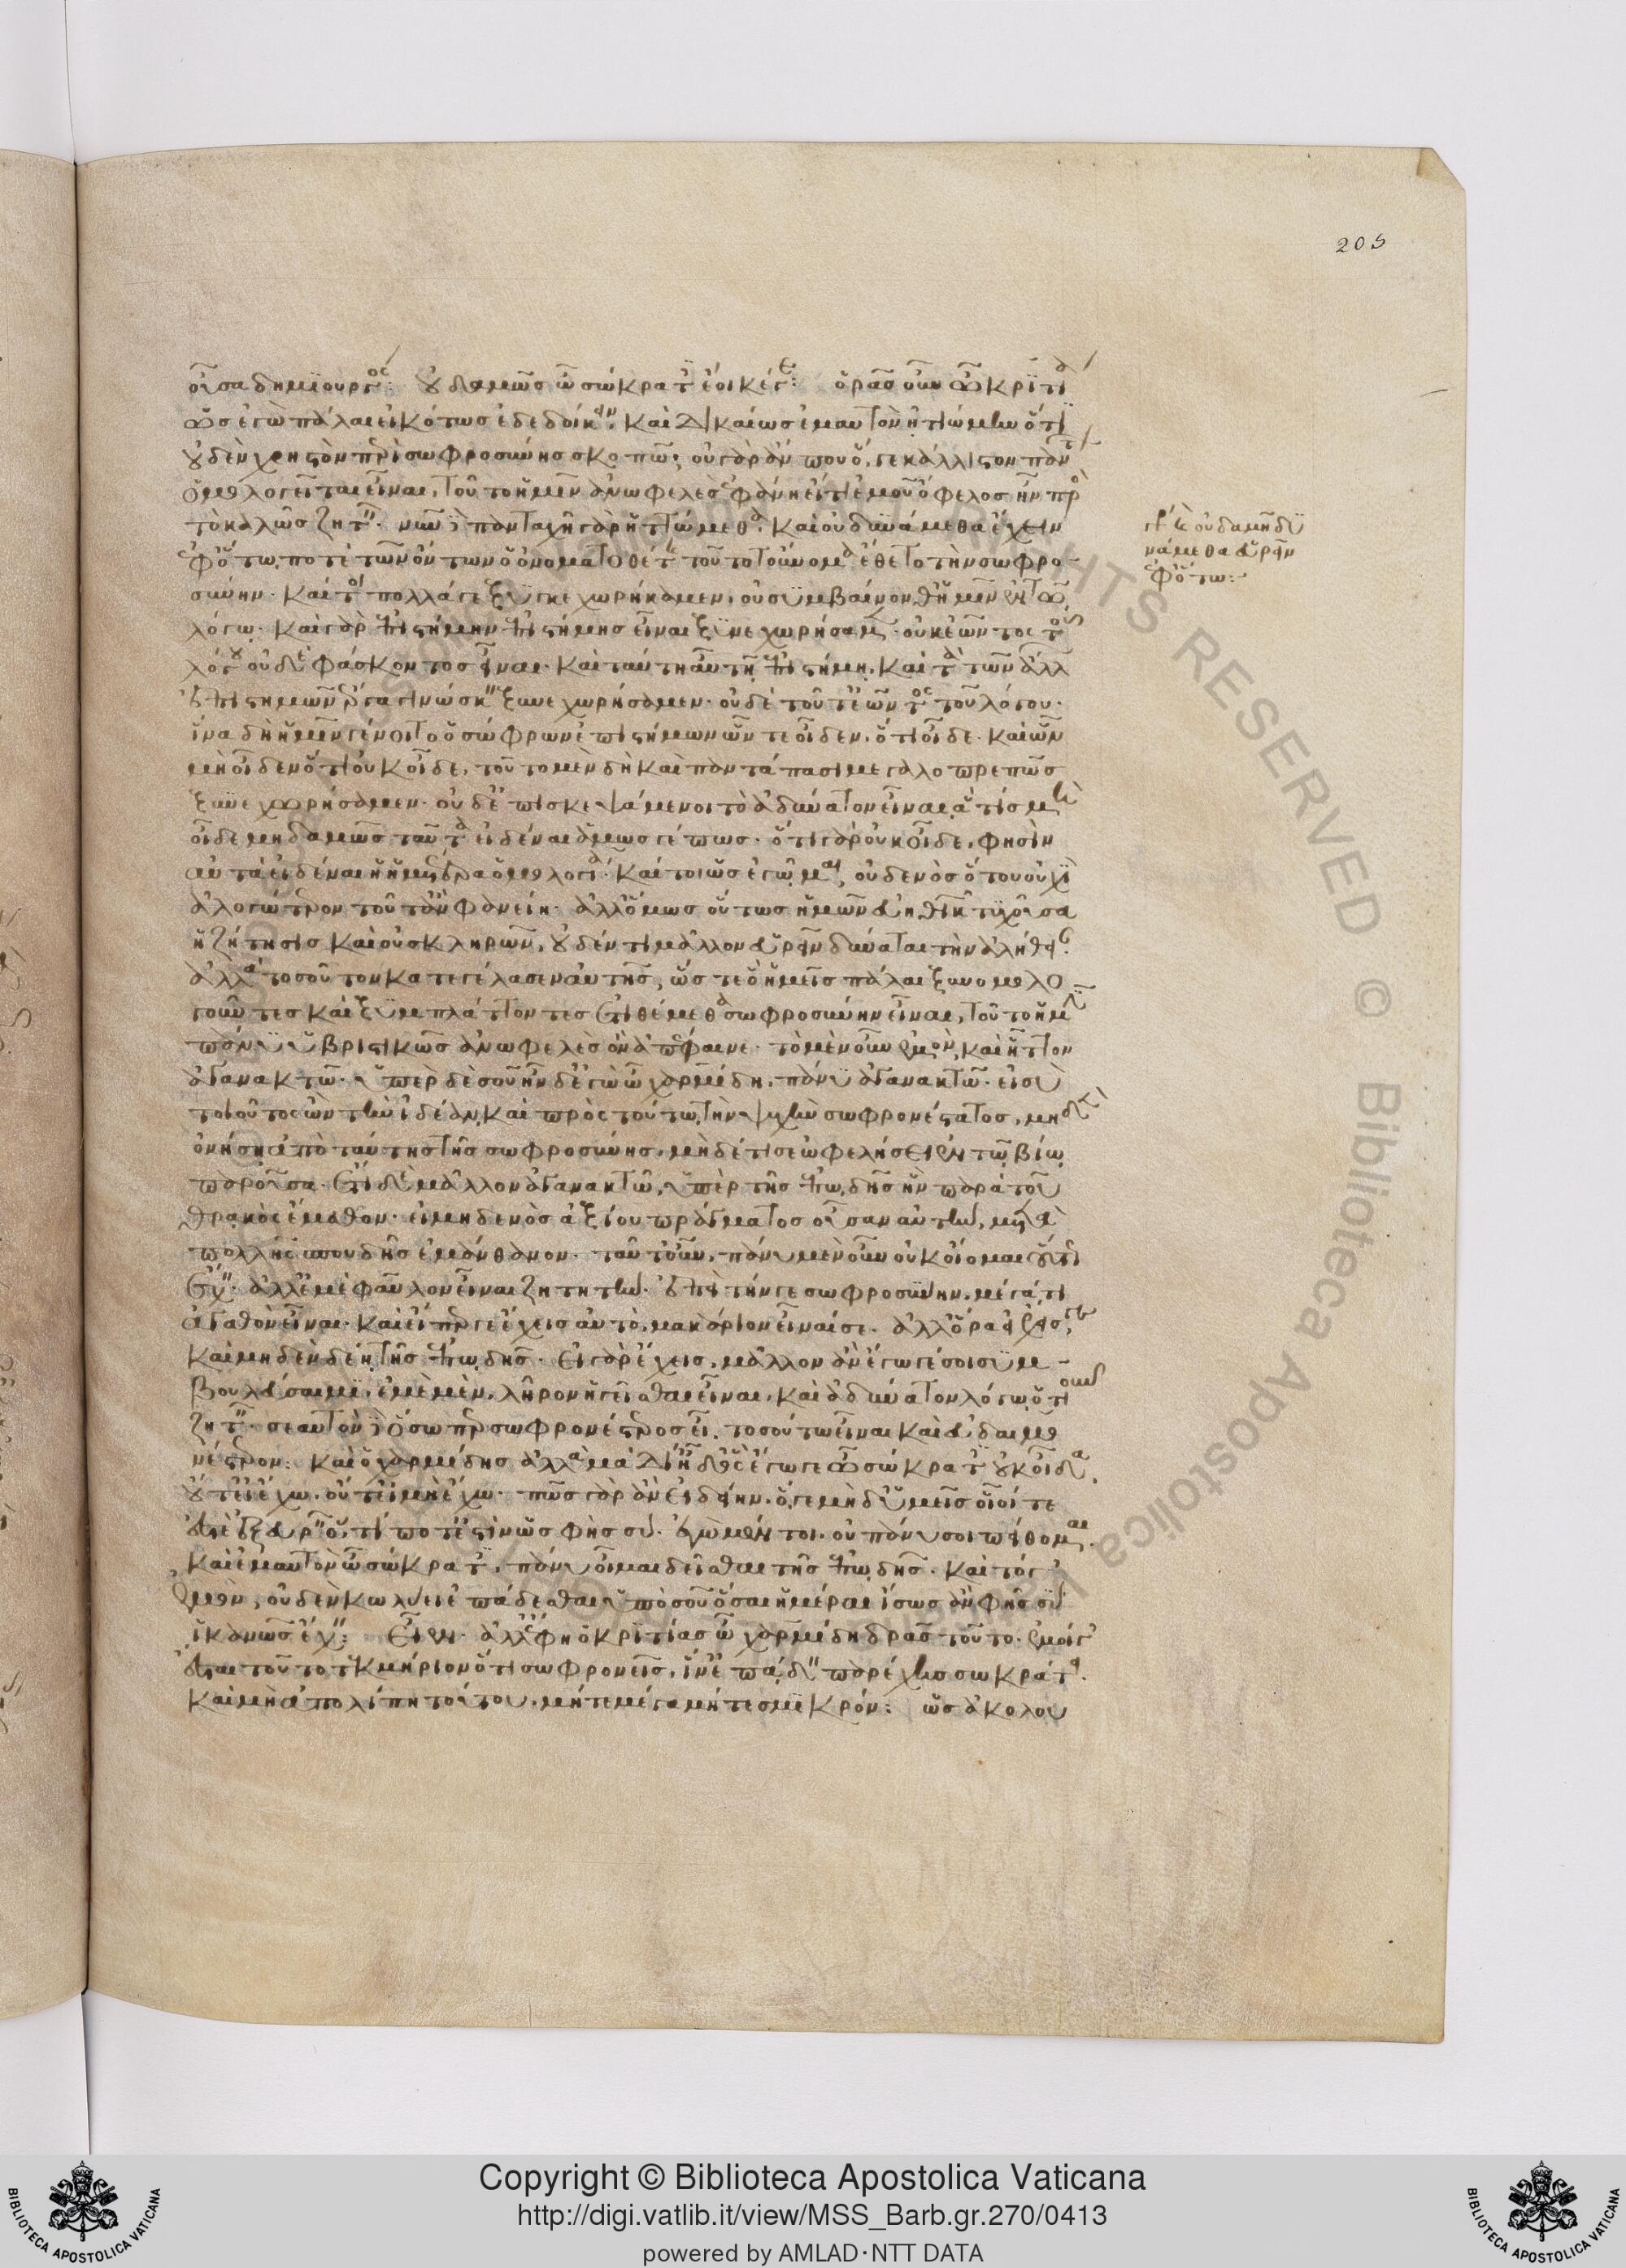 205
οὖσα δημιουργός: οὐδαμῶς ὦ σώκρατες ἔοικέ γε: ὁρᾷς οὖν ὦ κριτία
ὡς ἐγὼ πάλαι εἰκότως ἐδεδοίκειν, καὶ δικαίως ἐμαυτὸν ᾐτιώμην ὅτι
οὐδὲν χρηστὸν περὶ σωφροσύνης σκοπῶ; οὐ γὰρ ἄν που ὅ γε κάλλιστον πάντων
ὁμολογεῖται εἶναι, τοῦτο ἡμῖν ἀνωφελὲς ἐφάνη εἴ τι ἐμοῦ ὄφελος ἦν πρὸς
τὸ καλῶς ζητεῖν. νῦν δὲ πανταχῇ γὰρ ἡττώμεθα, καὶ οὐ δυνάμεθα ἔχειν
ἐφ' ὅτῳ ποτὲ τῶν ὄντων ὁ ὀνοματοθέτης τοῦτο τοὔνομα ἔθετο τὴν σωφρο-
σύνην. καίτοι πολλά γε ξυγκεχωρήκαμεν, οὐ συμβαίνονθ' ἡμῖν ἐν τῷ
λόγῳ. καὶ γὰρ ἐπιστήμην ἐπιστήμης εἶναι ξυνεχωρήσαμεν. οὐκ ἐῶντος τοῦ
λόγου οὐδὲ φάσκοντος εἶναι. καὶ ταύτῃ αὖ τῇ ἐπιστήμῃ, καὶ τὰ τῶν ἄλλων
ἐπιστημῶν ἔργα γινώσκειν ξυνεχωρήσαμεν. οὐδὲ τοῦτ' ἐῶντος τοῦ λόγου.
ἵνα δὴ ἡμῖν γένοιτο ὁ σώφρων ἐπιστήμων ὧν τε οἶδεν, ὅτι οἶδε. καὶ ὧν
μὴ οἶδεν ὅτι οὐκ οἶδε, τοῦτο μὲν δὴ καὶ πανταπάσι μεγαλοπρεπῶς
ξυνεχωρήσαμεν. οὐδ' ἐπισκεψάμενοι τὸ ἀδύνατον εἶναι ἅ τις μὴ
οἶδε μηδαμῶς ταῦτα εἰδέναι ἁμῶς γέ πως. ὅτι γὰρ οὐκ οἶδε, φησὶν
αὐτὰ εἰδέναι ἡ ἡμετέρα ὁμολογία. καίτοι ὡς ἐγᾦμαι, οὐδενὸς ὅτου οὐχὶ
ἀλογώτερον τοῦτ' ἂν φανείη. ἀλλ' ὅμως οὕτως ἡμῶν εὐηθικῶν τυχοῦσα
ἡ ζήτησις καὶ οὐ σκληρῶν, οὐδέν τι μᾶλλον εὑρεῖν δύναται τὴν ἀλήθειαν.
ἀλλὰ τοσοῦτον κατεγέλασεν αὐτῆς, ὥστε ὃ ἡμεῖς πάλαι ξυνομολο
γοῦντες καὶ ξυμπλάττοντες ἐτιθέμεθα σωφροσύνην εἶναι, τοῦτο ἡμῖν
πάνυ ὑβριστικῶς ἀνωφελὲς ὂν ἀπέφαινε. τὸ μὲν οὖν ἐμὸν, καὶ ἧττον
ἀγανακτῶ. ὑπὲρ δὲ σοῦ ἦν δ' ἐγὼ ὦ χαρμίδη, πάνυ ἀγανακτῶ. εἰ σὺ
τοιοῦτος ὢν τὴν ἰδέαν, καὶ πρὸς τούτῳ τὴν ψυχὴν σωφρονέστατος, μηδὲν
ὀνήσῃ ἀπὸ ταύτης τῆς σωφροσύνης, μηδέ τί σ' ὠφελήσει ἐν τῷ βίῳ
παροῦσα. ἔτι δὲ μᾶλλον ἀγανακτῶ, ὑπὲρ τῆς ἐπῳδῆς ἣν παρὰ τοῦ
θρᾳκὸς ἔμαθον. εἰ μηδενὸς ἀξίου πράγματος οὖσαν αὐτὴν, μετὰ
πολλῆς σπουδῆς ἐμάνθανον. ταῦτ' οὖν, πάνυ μὲν οὖν οὐκ οἴομαι οὕτως
ἔχειν. ἀλλ' ἐμὲ φαῦλον εἶναι ζητητήν. ἐπεὶ τήν γε σωφροσύνην, μέγα τι
ἀγαθὸν εἶναι. καὶ εἴπερ γε ἔχεις αὐτὸ, μακάριον εἶναί σε. ἀλλ' ὅρα εἰ ἔχεις τε
καὶ μηδὲν δέῃ τῆς ἐπῳδῆς. εἰ γὰρ ἔχεις, μᾶλλον ἂν ἔγωγέ σοι συμ-
βουλεύσαιμι, ἐμὲ μὲν, λῆρον ἡγεῖσθαι εἶναι, καὶ ἀδύνατον λόγῳ ὁτιοῦν
ζητεῖν. σεαυτὸν δὲ ὅσωπερ σωφρονέστερος εἶ, τοσούτῳ εἶναι καὶ εὐδαιμο
νέστερον: καὶ ὁ χαρμίδης ἀλλὰ μὰ δί' ἦ δ' ὃς ἔγωγε ὦ σώκρατες οὐκ οἶδα,
οὔτ' εἰ ἔχω, οὔτ' εἰ μὴ ἔχω. πῶς γὰρ ἂν εἰδείην, ὅ γε μὴ δ' ὑμεῖς οἷοί τε
ἐστὲ ἐξευρεῖν ὅτι ποτ' ἔστιν ὡς φῂς σύ. ἐγὼ μέντοι. οὐ πάνυ σοι πείθομαι.
καὶ ἐμαυτὸν ὦ σώκρατες, πάνυ οἶμαι δεῖσθαι τῆς ἐπῳδῆς. καὶ τό γ'
ἐμὸν, οὐδὲν κωλύει ἐπᾴδεσθαι ὑπὸ σοῦ ὅσαι ἡμέραι ἕως ἂν φῇς σὺ
ἱκανῶς ἔχειν: εἶεν. ἀλλ' ἔφη ὁ κριτίας ὦ χαρμίδη δρᾷς τοῦτο. ἔμοιγ'
ἔσται τοῦτο τεκμήριον ὅτι σωφρονεῖς, ἢν ἐπᾴδειν παρέχῃς σωκράτει.
καὶ μὴ ἀπολίπῃ τούτου, μήτε μέγα μήτε σμικρόν: ὡς ἀκολου
γρ καὶ οὐδαμῇ δυ
νάμεθα εὑρεῖν
ἐφ' ὅτῳ:
RIGHTS RESERVED © Biblioteca Apostolica Vaticana
BIBLIOTECA APOSTOLICA VATICANA
Copyright © Biblioteca Apostolica Vaticana
http://digi.vatlib.it/view/MSS_Barb.gr.270/0413
powered by AMLAD·NTT DATA
BIBLIOTECA APOSTOLICA VATICANA